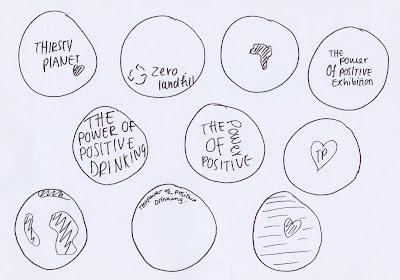 THIRSTY
PLANET
Zero
landfill
THE
POWER
OF POSITIVE
Exhibition
THE
POWER OF
POSITIVE
DRINKING
THE
POWER
OF
POSITIVE
TP
The Power of Positive
Drinking!